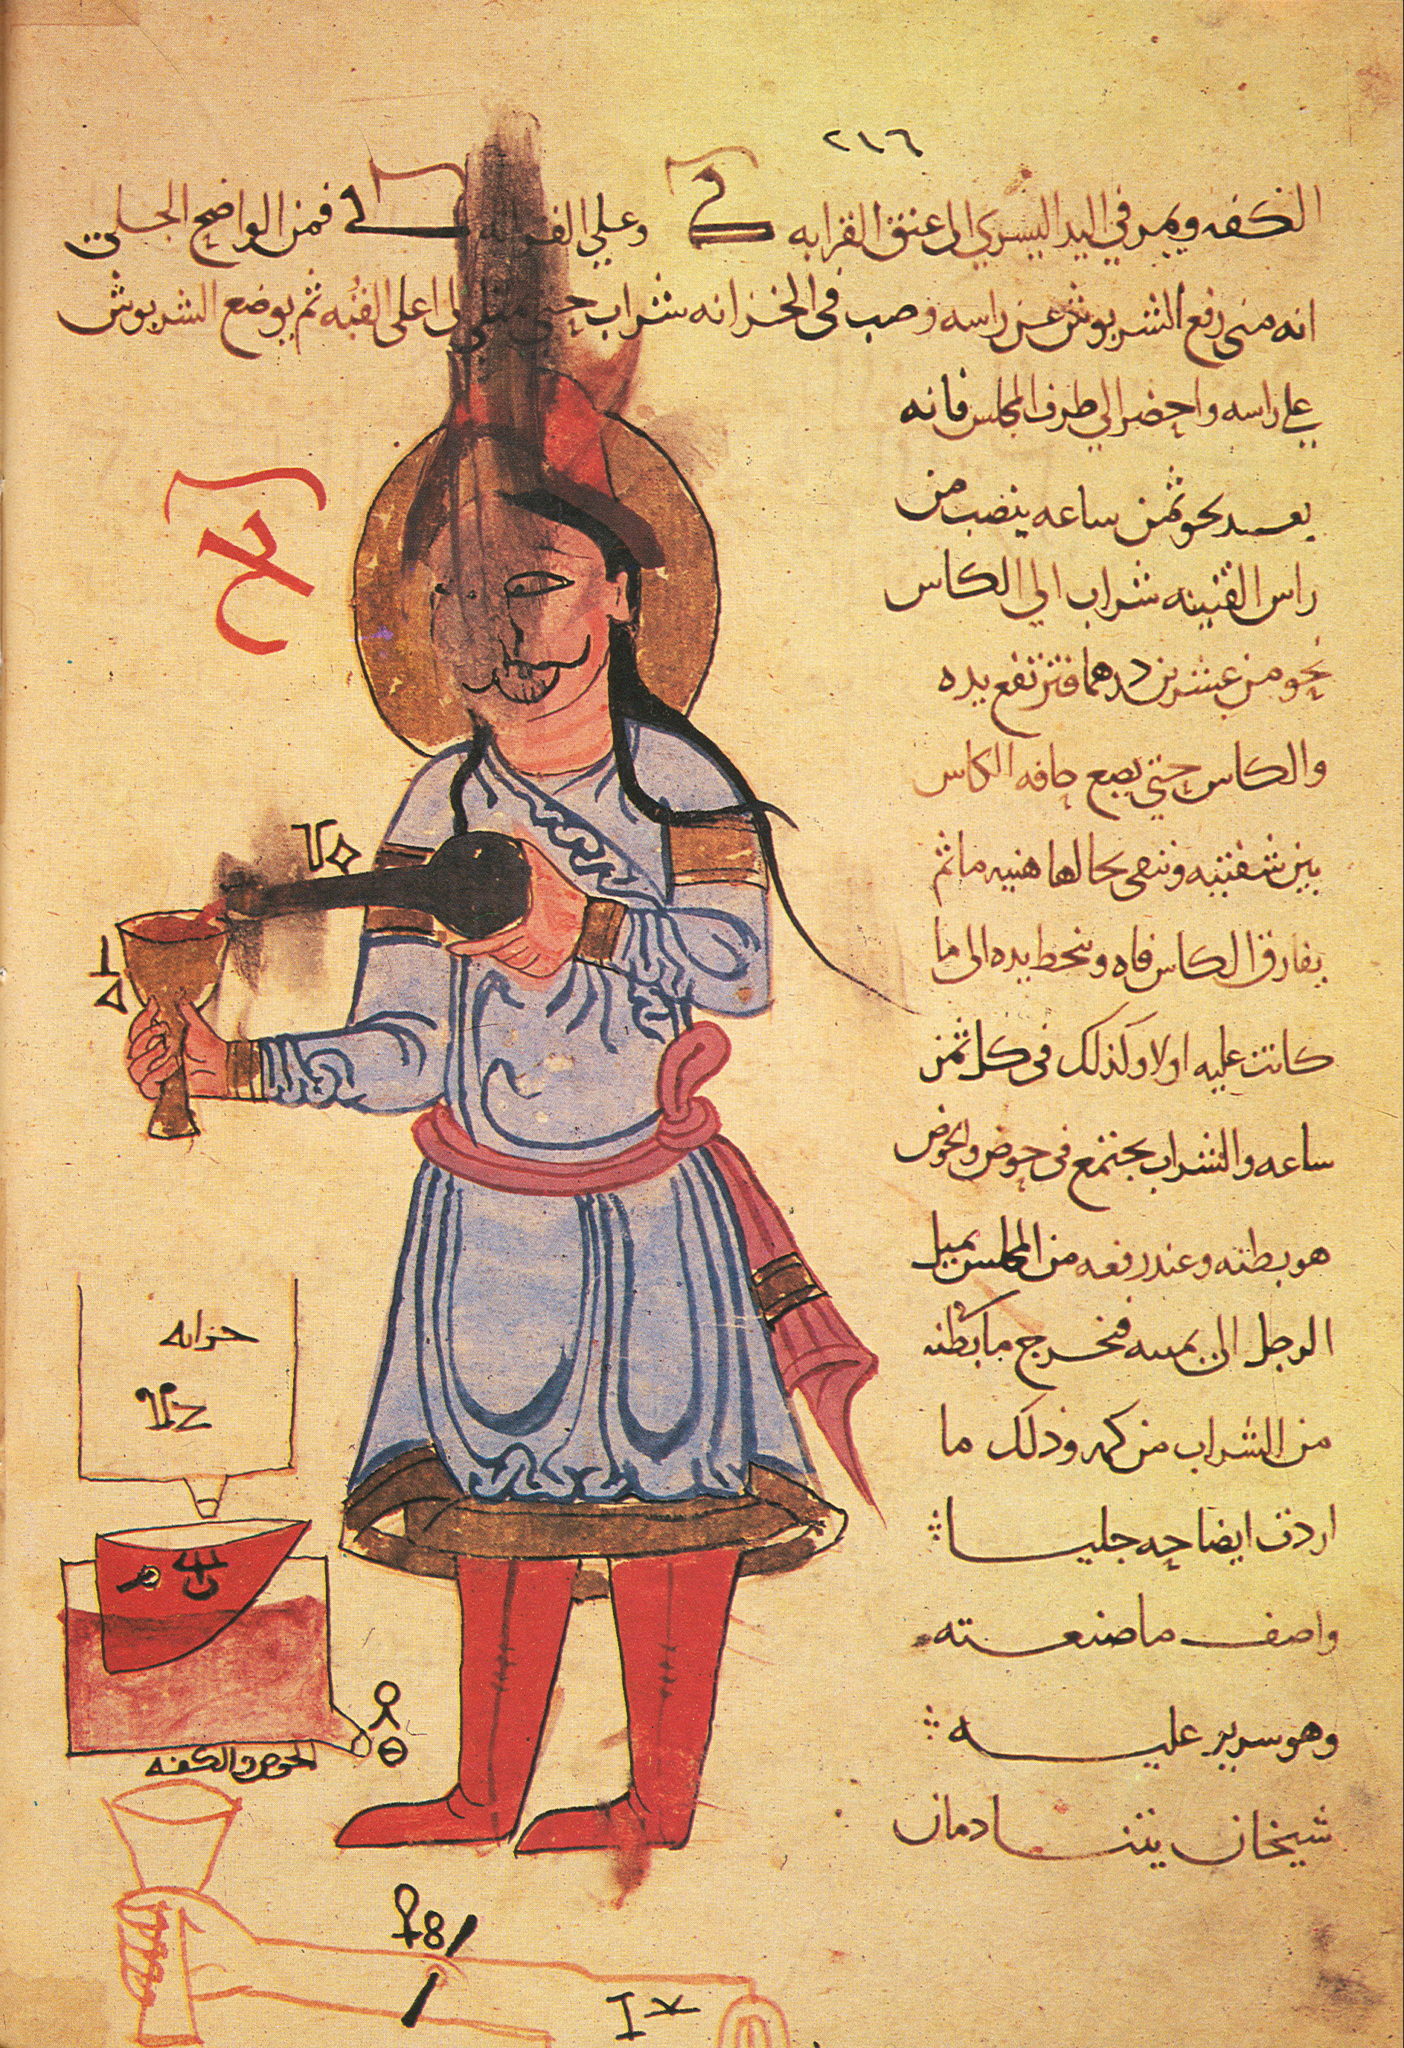 ٢١٦
الكفه ويمر في اليد اليسرى الى عنق القرابه وعلى فمن الواضح الجلي
انه متى رفع الشربوش عن راسه وصب في الخزانه شراب حتى اعلى القبه ثم يوضع الشربوش
على راسه واحضر الى طرف المجلس فانه
بعد نحو ثمن ساعه ينصب من
راس القنينه شراب الى الكاس
نحو من عشرين درهما فترتفع يده
والكاس حتى يصع حافه الكاس
بين شفتيه وتبقى بحالها هنيه ما ثم
يفارق الكاس فاه وينحط يده الى ما
كانت عليه اولا وكذلك في كل ثمن
ساعه والشراب يجتمع في حوض والحوض
هو بطنه وعند رفعه من المجلس يميل
الرجل الى يمينه فيخرج ما بطنه
من الشراب من كمه وذلك ما
اردت ايضاحه جليا
واصف ما صنعته
وهو سرير عليه
شيخان يتنادمان
خزانه
الحوض والكفه